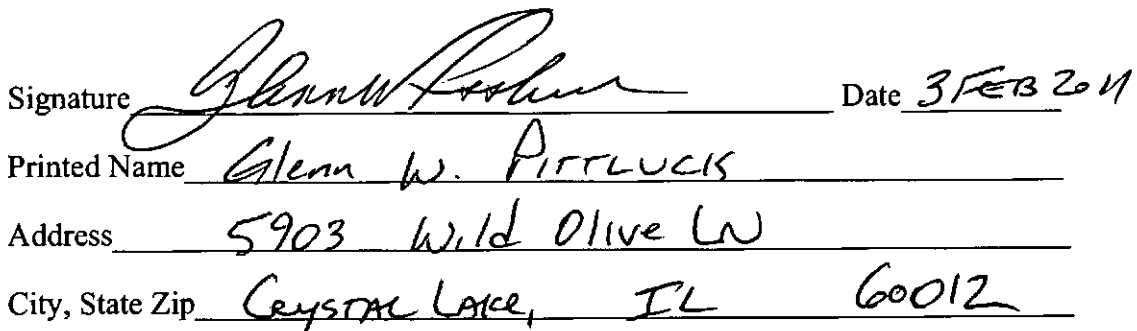 Signature Glenn W Date 3 FEB 2011
Printed Name Glenn W. PITTLUCK
Address 5903 Wild Olive LN
City, State Zip CRYSTAL LAKE, IL 60012